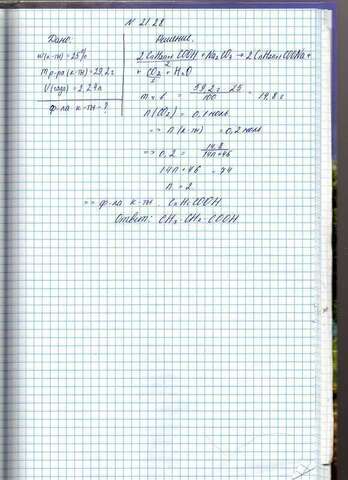 N 21.28
Дано:
w(к-ты) = 25%
m р-ра (к-ты) = 59,2 г
V(газа) = 2,24 л
ф-ла к-ты - ?
Решение.
2CnH2n+1COOH + Na2CO3 → 2CnH2n+1COONa +
+ CO2 + H2O
m к-т = 59,2 · 25 / 100 = 14,8 г
n(CO2) = 0,1 моль
=> n(к-ты) = 0,2 моль
=> 0,2 = 14,8 / 14n+46
14n + 46 = 74
n = 2
=> ф-ла к-ты: C2H5COOH
Ответ: CH3-CH2-COOH